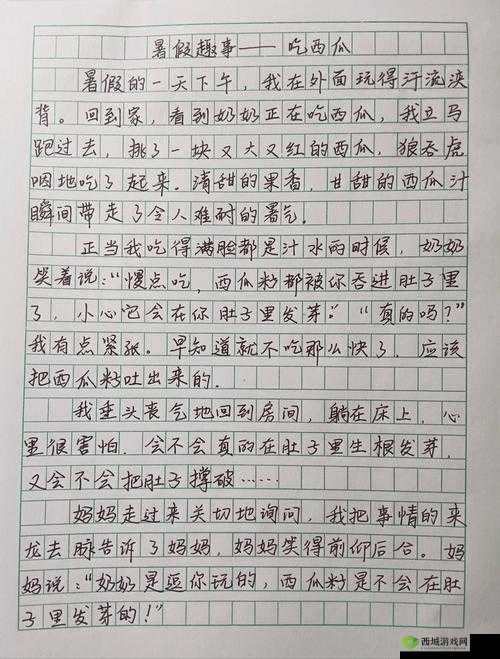 暑假趣事——吃西瓜
暑假的一天下午，我在外面玩得汗流浃
背。回到家，看到奶奶正在吃西瓜，我立马
跑过去，挑了一块又大又红的西瓜，狼吞虎
咽地吃了起来。清甜的果香，甘甜的西瓜汁
瞬间带走了令人难耐的暑气。
正当我吃得满脸都是汁水的时候，奶奶
笑着说：“慢点吃，西瓜籽都被你吞进肚子里
了，小心它会在你肚子里发芽。”“真的吗？”
我有点紧张。早知道就不吃那么快了，应该
把西瓜籽吐出来的.
我垂头丧气地回到房间，躺在床上，心
里很害怕，会不会真的在肚子里生根发芽，
又会不会把肚子撑破……
妈妈走过来关切地询问，我把事情的来
龙去脉告诉了妈妈，妈妈笑得前仰后合。妈
妈说：“奶奶是逗你玩的，西瓜籽是不会在肚
子里发芽的！”
西城游戏网